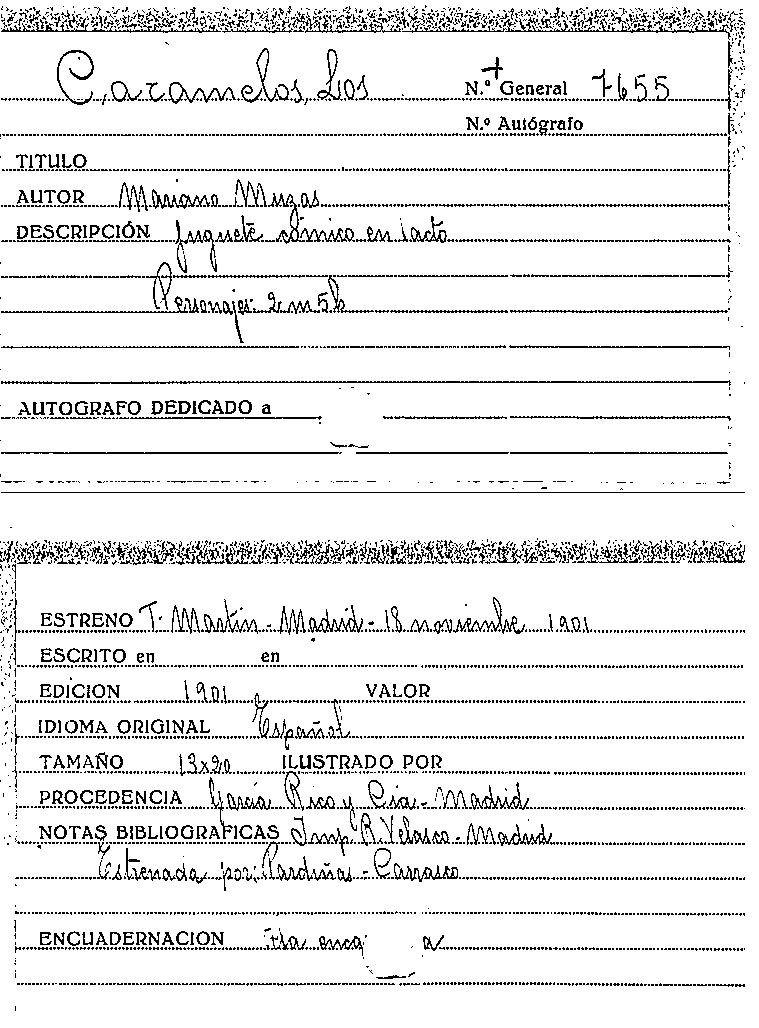 Caramelos, Los N.º General 7655
N.º Autógrafo
TITULO
AUTOR Mariano Muzas
DESCRIPCIÓN Juguete cómico en 1 acto
Personajes: 2 m 5 h
AUTOGRAFO DEDICADO a
ESTRENO T. Martin - Madrid - 18 noviembre 1901
ESCRITO en en
EDICION 1901 VALOR
IDIOMA ORIGINAL Español
TAMAÑO 13x20 ILUSTRADO POR
PROCEDENCIA García Rico y Cía - Madrid
NOTAS BIBLIOGRAFICAS Imp. R. Velasco - Madrid
Estrenada por: Pardiñas - Carrasco
ENCUADERNACION